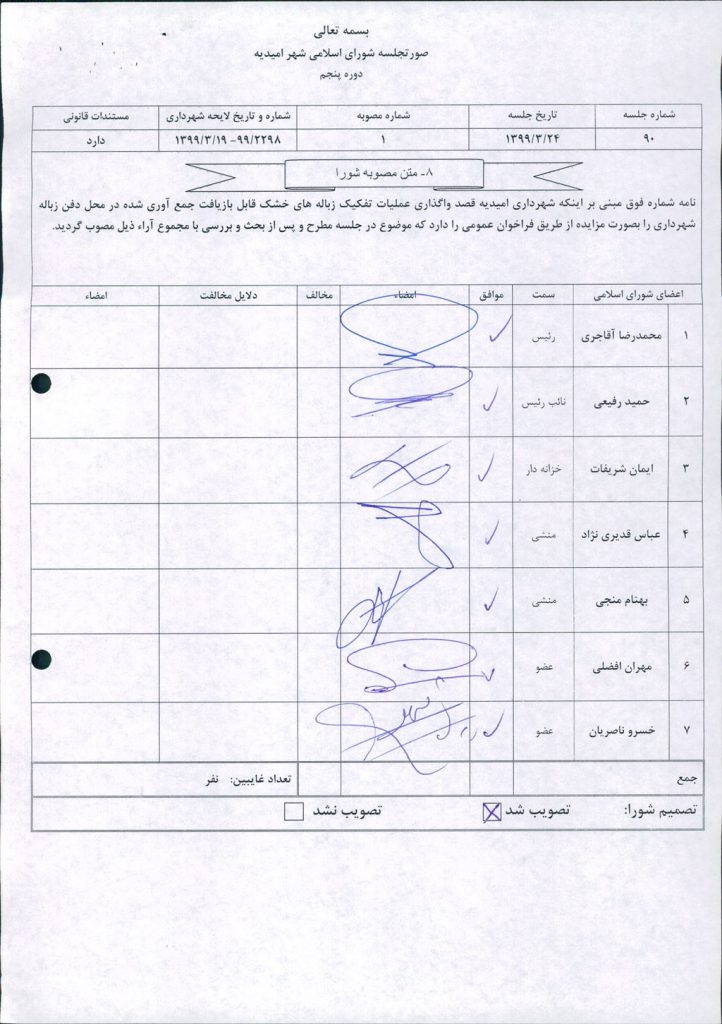 بسمه تعالی
صورتجلسه شورای اسلامی شهر امیدیه
دوره پنجم
شماره جلسه تاریخ جلسه شماره مصوبه شماره و تاریخ لایحه شهرداری مستندات قانونی
۹۰ ۱۳۹۹/۳/۲۴ ۱ ۹۹/۲۲۹۸- ۱۳۹۹/۳/۱۹ دارد
۸- متن مصوبه شورا
نامه شماره فوق مبنی بر اینکه شهرداری امیدیه قصد واگذاری عملیات تفکیک زباله های خشک قابل بازیافت جمع آوری شده در محل دفن زباله
شهرداری را بصورت مزایده از طریق فراخوان عمومی را دارد که موضوع در جلسه مطرح و پس از بحث و بررسی با مجموع آراء ذیل مصوب گردید.
اعضای شورای اسلامی سمت موافق امضاء مخالف دلایل مخالفت امضاء
۱ محمدرضا آقاجری رئیس
۲ حمید رفیعی نائب رئیس
۳ ایمان شریفات خزانه دار
۴ عباس قدیری نژاد منشی
۵ بهنام منجی منشی
۶ مهران افضلی عضو
۷ خسرو ناصریان عضو
جمع تعداد غایبین: نفر
تصمیم شورا: تصویب شد تصویب نشد